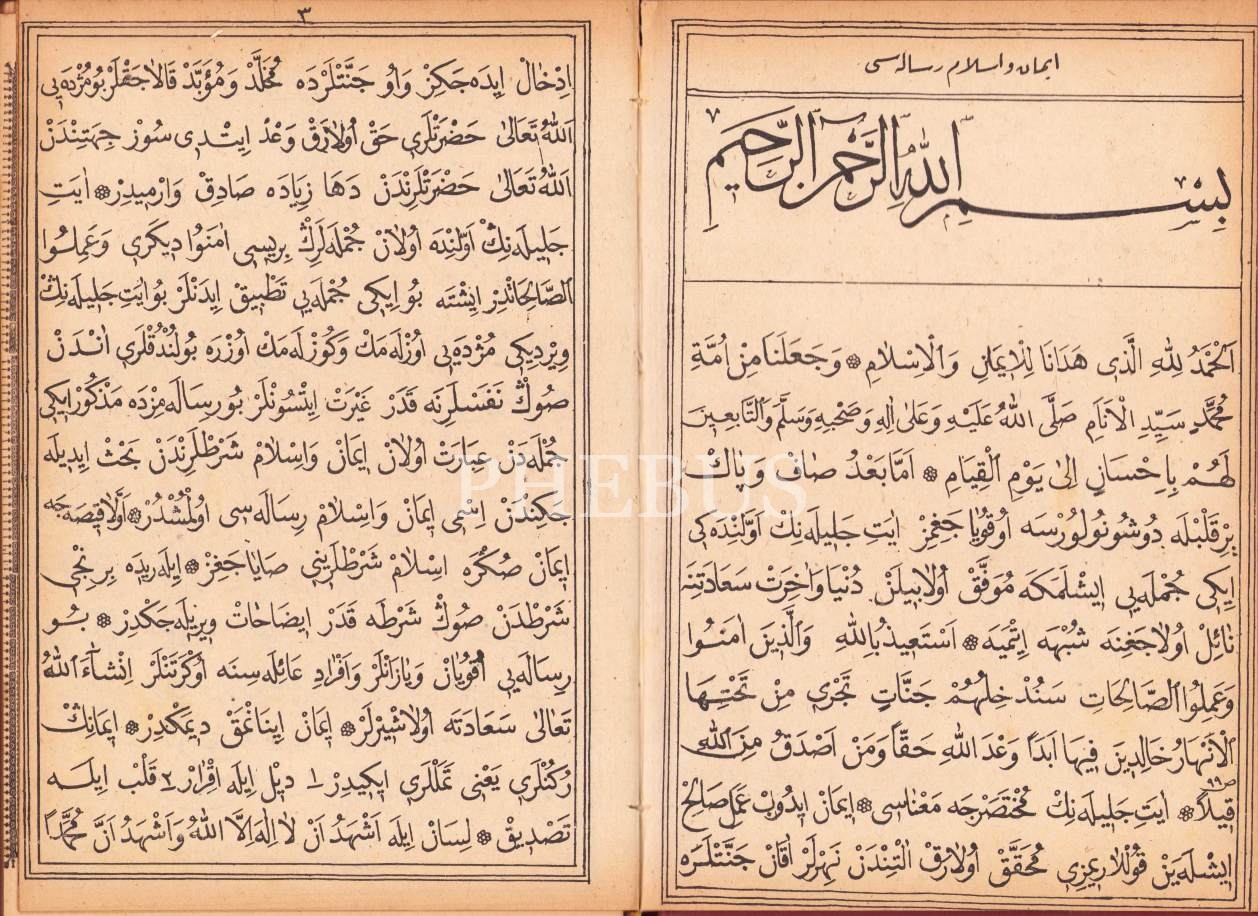 ايمان و اسلام رساله سى
بِسْمِ اللّٰهِ الرَّحْمٰنِ الرَّحِيمِ
اَلْحَمْدُ لِلّٰهِ الَّذِى هَدَانَا لِلْاِيمَانِ وَالْاِسْلَامِ ❁ وَجَعَلَنَا مِنْ اُمَّةِ
مُحَمَّدٍ سَيِّدِ الْاَنَامِ صَلَّى اللّٰهُ عَلَيْهِ وَعَلٰى اٰلِهِ وَصَحْبِهِ وَسَلَّمَ وَالتَّابِعِينَ
لَهُمْ بِاِحْسَانٍ اِلٰى يَوْمِ الْقِيَامِ ❁ اَمَّا بَعْدُ صَافْ وَپَاكْ
بِرْ قَلْبْلَه دُوشُونُولُورْسَه اُوقُويَاجَغِمِزْ اٰيَتِ جَلِيلَه نِكْ اَوَّلِنْدَه كِى
اِيكِى جُمْلَه يِى اِيشْلَمَكَه مُوَفَّقْ اُولَابِيلَنْ دُنْيَا وَاٰخِرَتْ سَعَادَتِنَه
نَائِلْ اُولَاجَغِنَه شُبْهَه اِتْمِيَه ❁ اَسْتَعِيذُ بِاللّٰهِ وَالَّذِينَ اٰمَنُوا
وَعَمِلُوا الصَّالِحَاتِ سَنُدْخِلُهُمْ جَنَّاتٍ تَجْرِى مِنْ تَحْتِهَا
الْاَنْهَارُ خَالِدِينَ فِيهَا اَبَدًا وَعْدَ اللّٰهِ حَقًّا وَمَنْ اَصْدَقُ مِنَ اللّٰهِ
قِيلًا ❁ اٰيَتِ جَلِيلَه نِكْ مُخْتَصَرْجَه مَعْنَاسِى ❁ اِيمَانْ اِيدُوبْ عَمَلِ صَالِحْ
اِيشْلَه يَنْ قُوللَارِيمِزِى مُحَقَّقْ اُولَارَقْ اَلْتِنْدَنْ نَهِرْلَرْ اَقَانْ جَنَّتْلَرَه
٣
اِدْخَالْ اِيدَه جَكِزْ وَاُو جَنَّتْلَرْدَه مُخَلَّدْ وَمُؤَبَّدْ قَالَاجَقْلَرْ بُو مُژْدَه يِى
اَللّٰهُ تَعَالٰى حَضْرَتْلَرِى حَقْ اُولَارَقْ وَعْدْ اِيتْدِى سُوزْ جِهَتِنْدَنْ
اَللّٰهُ تَعَالٰى حَضْرَتْلَرِنْدَنْ دَهَا زِيَادَه صَادِقْ وَارْمِيدِرْ ❁ اٰيَتِ
جَلِيلَه نِكْ اَوَّلِنْدَه اُولَانْ جُمْلَه لَرِكْ بِرِيسِى اٰمَنُوا دِيكَرِى وَعَمِلُوا
الصَّالِحَاتْدِرْ اِيشْتَه بُو اِيكِى جُمْلَه يِى تَطْبِيقْ اِيدَنْلَرْ بُو اٰيَتِ جَلِيلَه نِكْ
وِيرْدِيكِى مُژْدَه يِى اُوزْلَه مَكْ وَكُوزْلَه مَكْ اُوزْرَه بُولُنْدُقْلَرِى اٰنْدَنْ
صُوكْ نَفَسْلَرِنَه قَدَرْ غَيْرَتْ اِيتْسُونْلَرْ بُو رِسَالَه مِزْدَه مَذْكُورْ اِيكِى
جُمْلَه دَنْ عِبَارَتْ اُولَانْ اِيمَانْ وَاِسْلَامْ شَرْطْلَرِنْدَنْ بَحْثْ اِيدِيلَه
جَكِنْدَنْ اِسْمِى اِيمَانْ وَاِسْلَامْ رِسَالَه سِى اُولْمُشْدُرْ ❁ اَوَّلَا قِيصَه جَه
اِيمَانْ صُكْرَه اِسْلَامْ شَرْطْلَرِينِى صَايَاجَغِزْ ❁ اِيلَه رِيدَه بِرِنْجِى
شَرْطْدَنْ صُوكْ شَرْطَه قَدَرْ اِيضَاحَاتْ وِيرِيلَه جَكْدِرْ ❁ بُو
رِسَالَه يِى اُقُويَانْ وَيَازَانْلَرْ وَاَفْرَادِ عَائِلَه سِنَه اُوكْرَتَنْلَرْ اِنْشَاءَ اللّٰهُ
تَعَالٰى سَعَادَتَه اُولَاشِيرْلَرْ ❁ اِيمَانْ اِينَانْمَقْ دِيمَكْدِرْ ❁ اِيمَانِكْ
رُكُنْلَرِى يَعْنِى تَمَلْلَرِى اِيكِيدِرْ ١ دِيلْ اِيلَه اِقْرَارْ ٢ قَلْبْ اِيلَه
تَصْدِيقْ ❁ لِسَانْ اِيلَه اَشْهَدُ اَنْ لَا اِلٰهَ اِلَّا اللّٰهُ وَاَشْهَدُ اَنَّ مُحَمَّدًا
PHEBUS